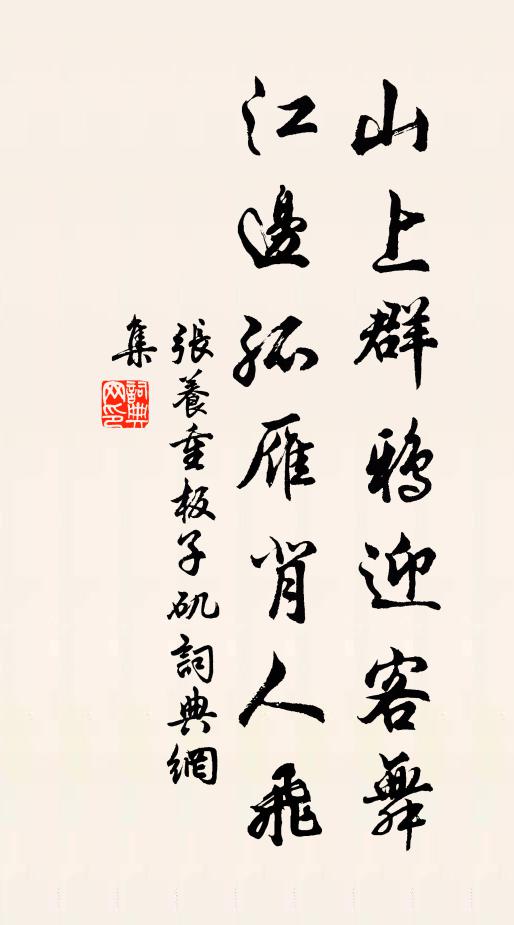 山上群鴉迎客舞
江邊孤雁背人飛
張養重板子矶詞典網
集
詞典
网印